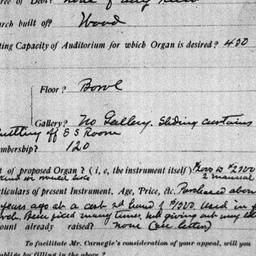 of Debt? none of any
urch built of? Wood
ting Capacity of Auditorium for which Organ is desired? 400
Floor? Bowl
Gallery? No Gallery. Sliding curtains
cutting off S S Room
mbership? 120
t of proposed Organ? (i, e, the instrument itself) $2000
kind we would like 2 manual
rticulars of present Instrument, Age, Price, etc. Purchased about
years ago at a cost 2nd hand of $1500. Used in
Been fixed many times, but giving out
ount already raised? none (see letter)
To facilitate Mr. Carnegie's consideration of your appeal, will you
oblige by filling in the above?